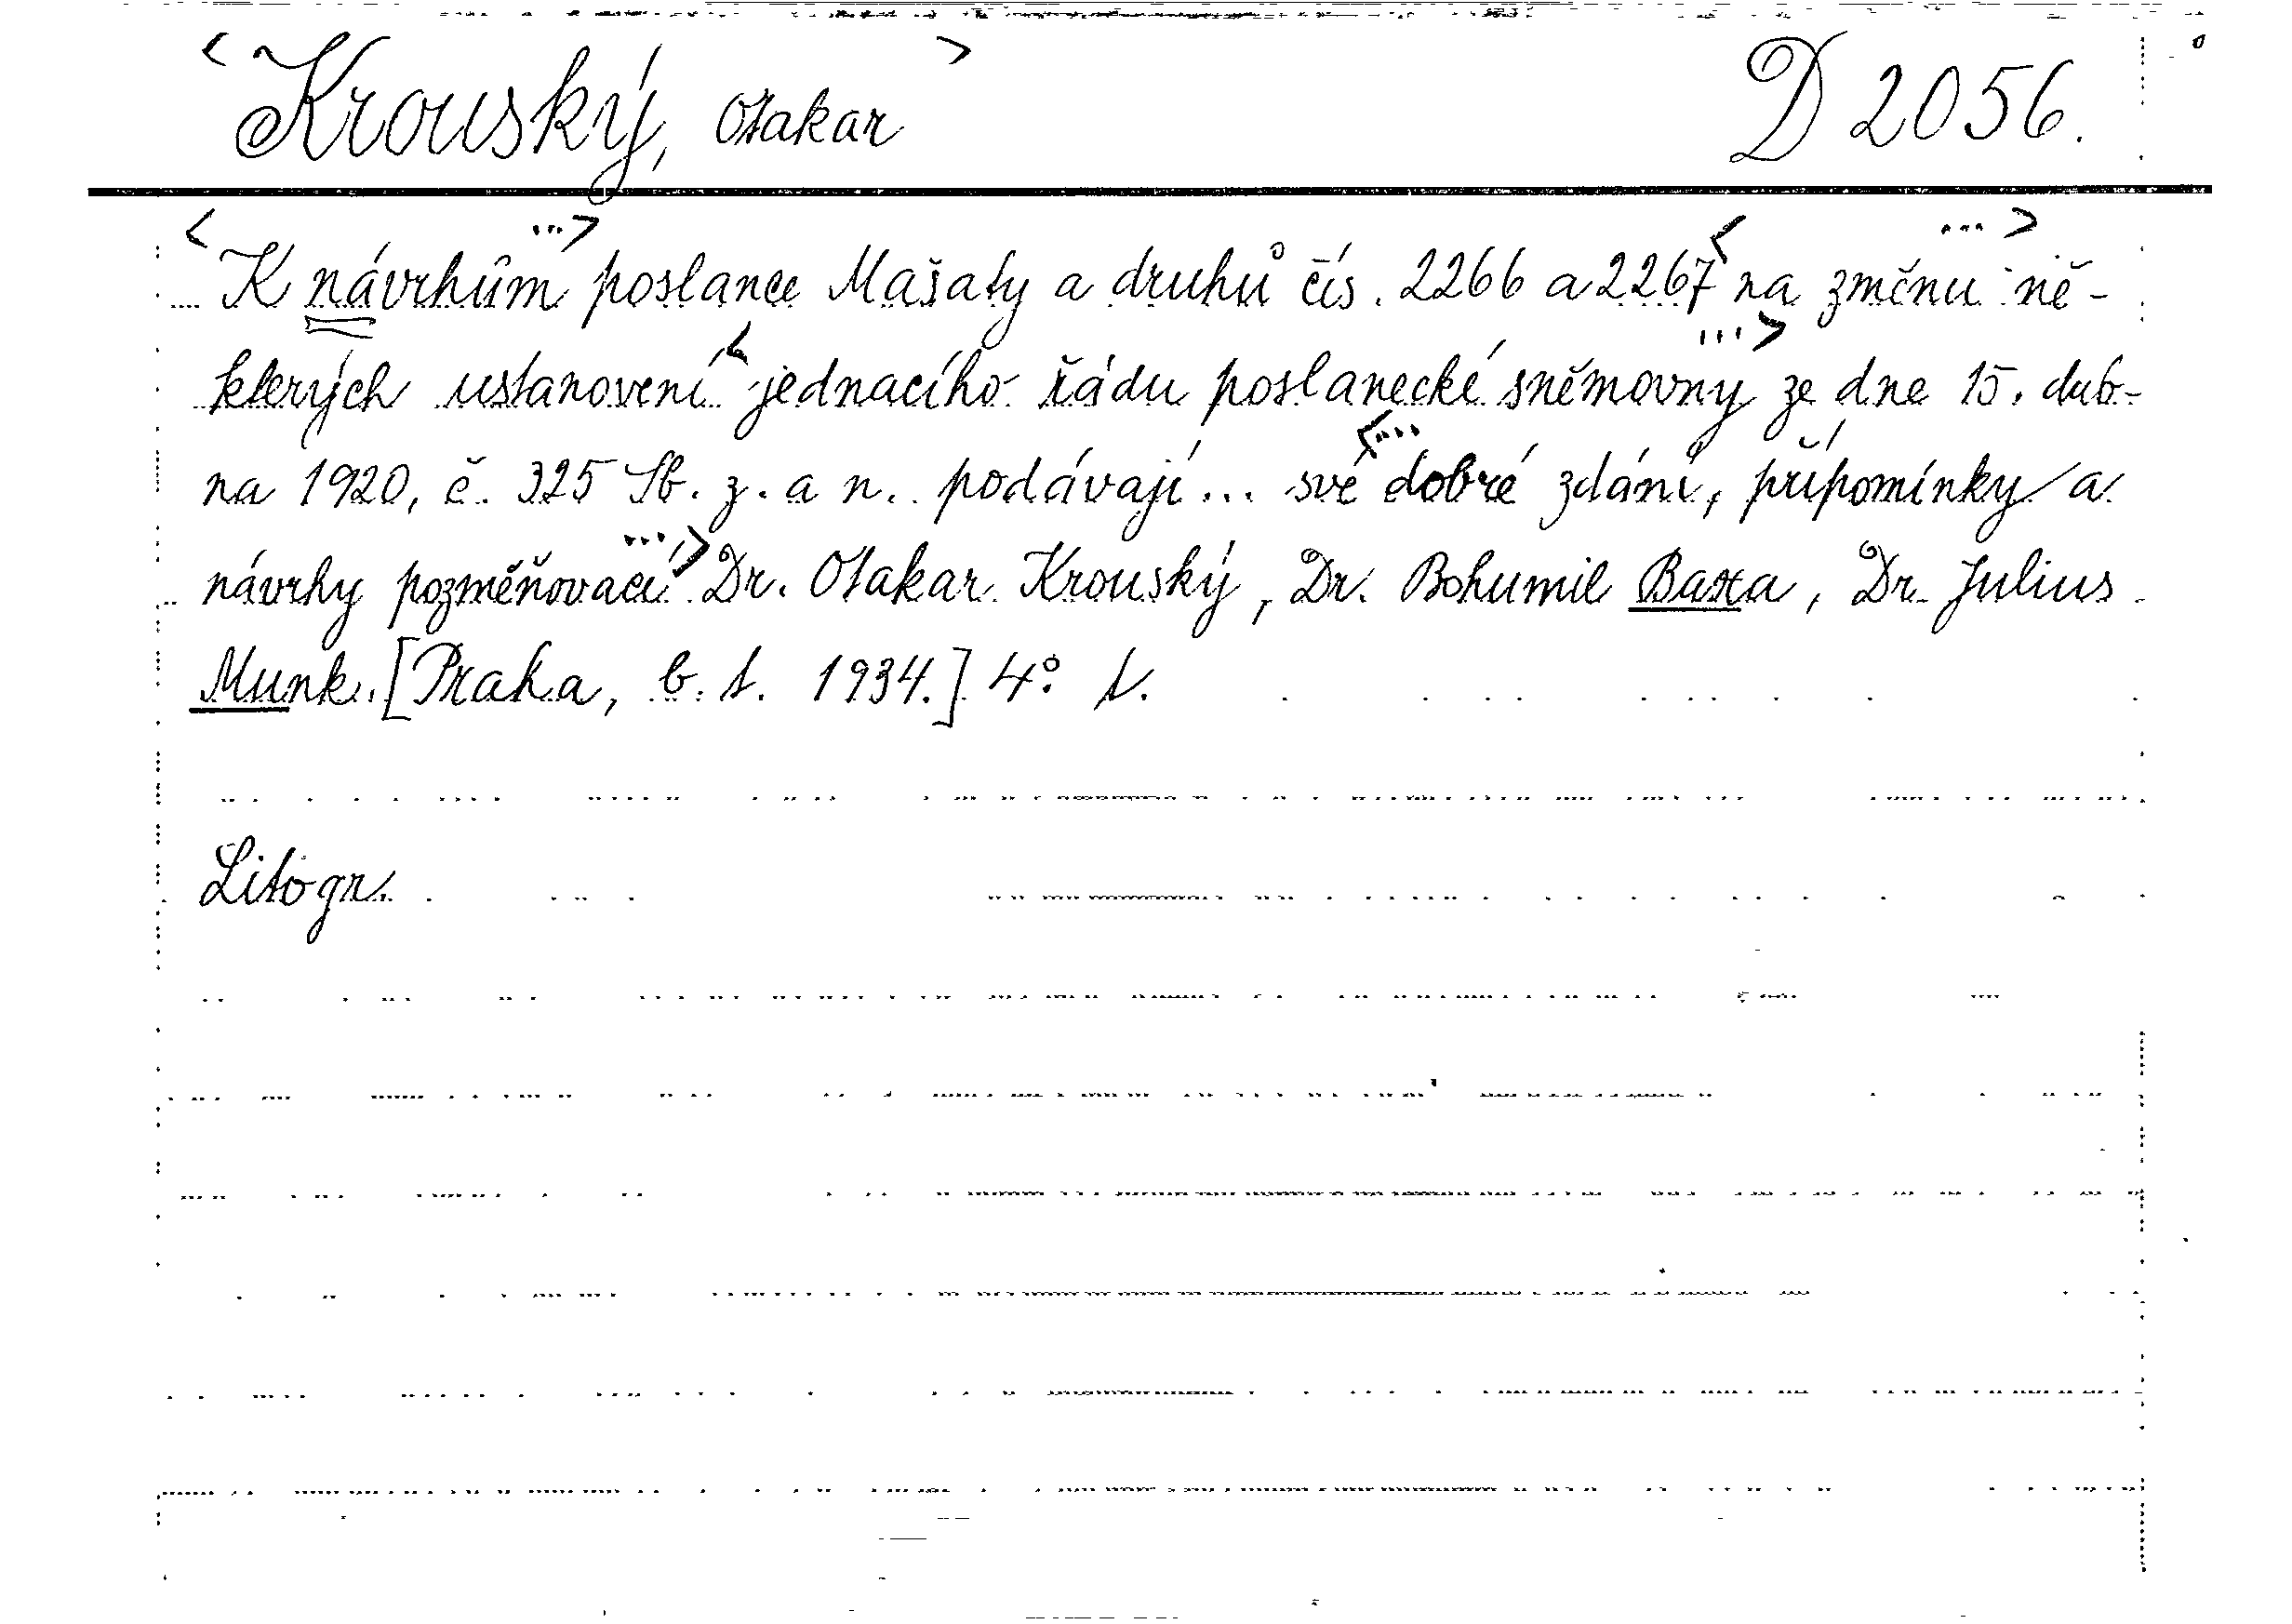 <Krouský, Otakar> D 2056.
<K návrhům ...> poslance Mašaty a druhů čís. 2266 a 2267 <na změnu ...> ně-
kterých ustanovení <jednacího řádu poslanecké sněmovny ...> ze dne 15. dub-
na 1920, č. 325 Sb. z. a n. podávají ... své <... dobré zdání, připomínky a
návrhy pozměňovací ...> Dr. Otakar Krouský, Dr. Bohumil Baxa, Dr. Julius
Munk. [Praha, b. t. 1934.] 4°.
Litogr.